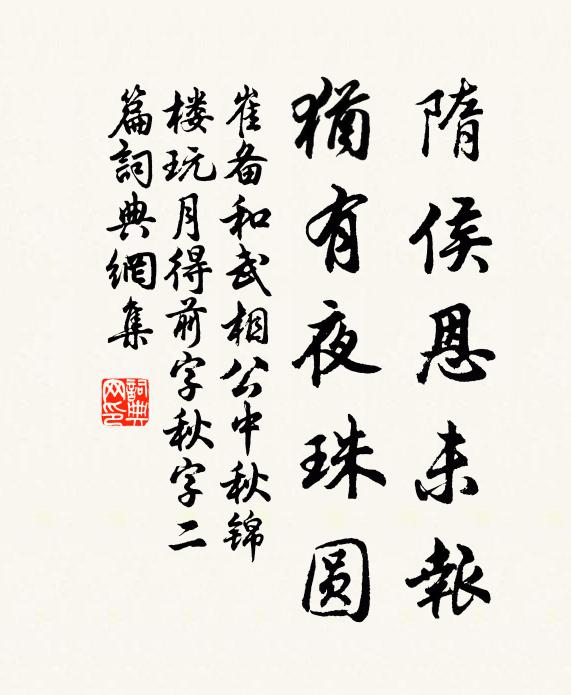 隋侯恩未報
猶有夜珠圆
崔备和武相公中秋锦
楼玩月得前字秋字二
篇詞典網集
詞典网印